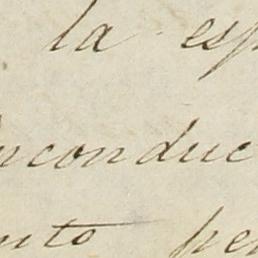 la esp
nconduc
nto per